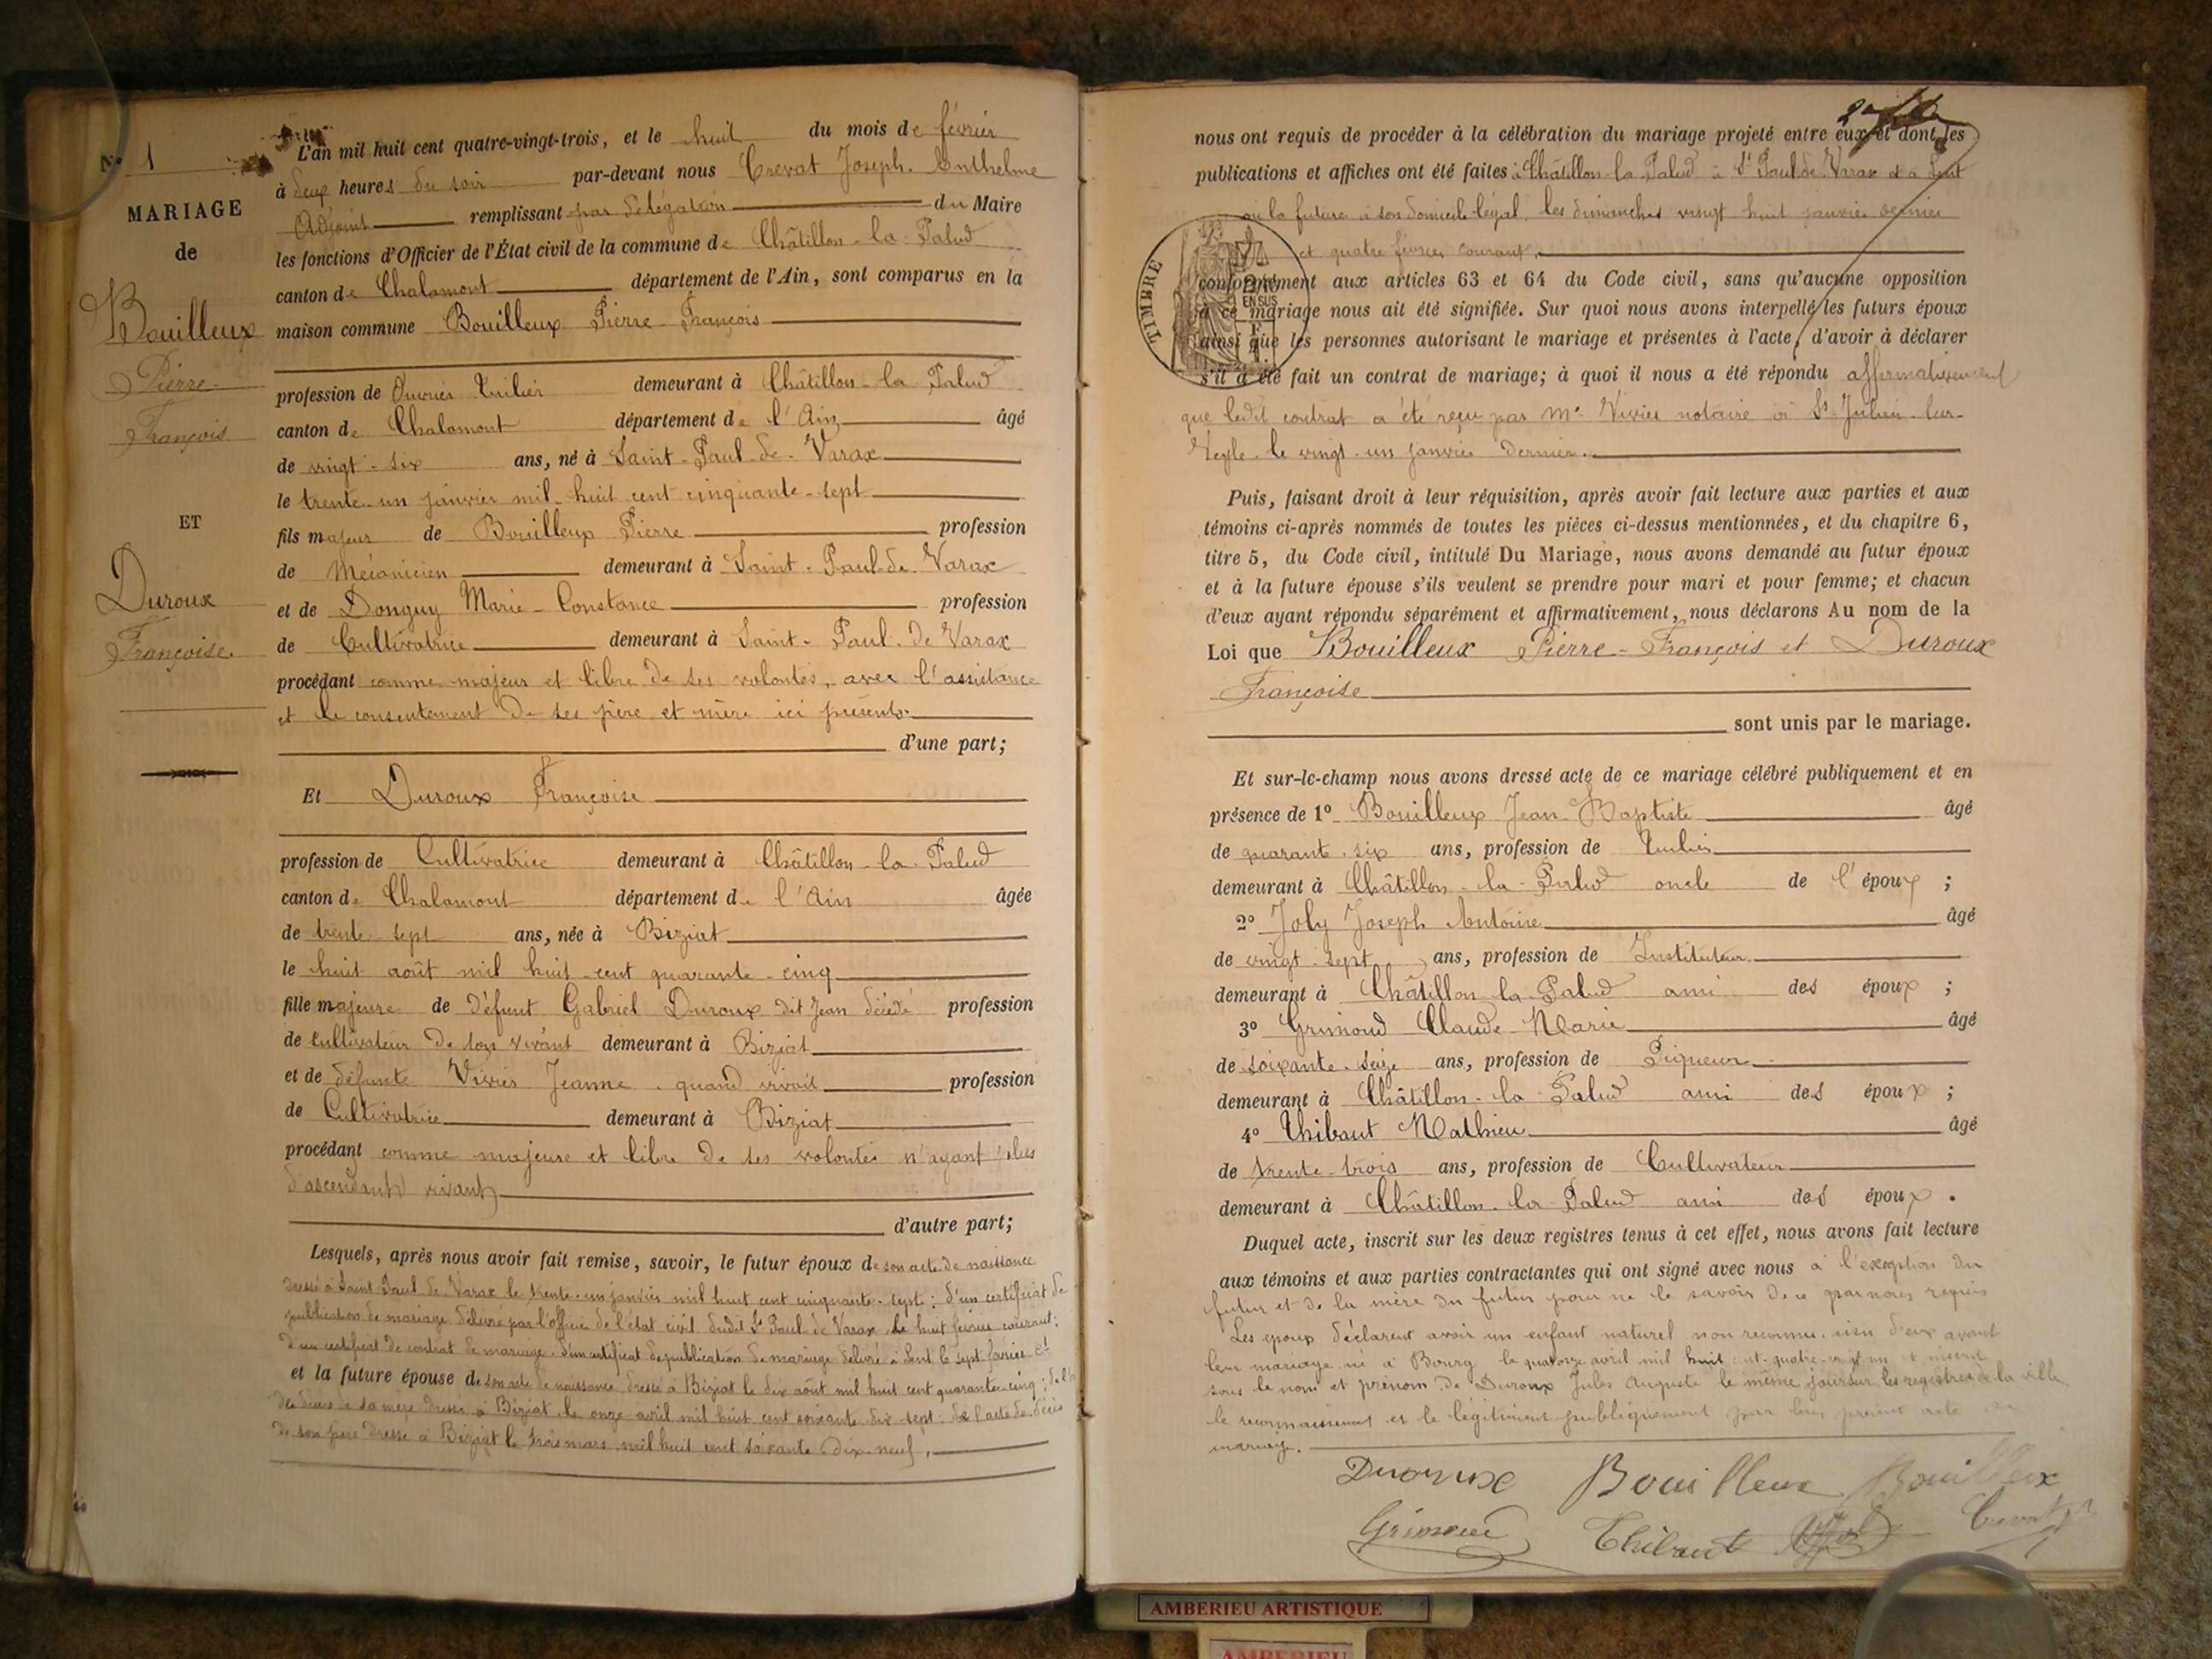 N° 1
MARIAGE
de
Bouilleux
Pierre
François
ET
Duroux
Françoise.
L'an mil huit cent quatre-vingt-trois, et le huit du mois de février
à deux heures du soir par-devant nous Crevat Joseph. Anthelme
Adjoint remplissant par délégation du Maire
les fonctions d'Officier de l'État civil de la commune de Châtillon-la-Palud
canton de Chalamont département de l'Ain, sont comparus en la
maison commune Bouilleux Pierre-François
profession de Ouvrier Tuilier demeurant à Châtillon-la Palud
canton de Chalamont département de l'Ain âgé
de vingt-six ans, né à Saint-Paul-de-Varax
le trente-un janvier mil-huit cent cinquante-sept
fils majeur de Bouilleux Pierre profession
de Mécanicien demeurant à Saint-Paul-de Varax
et de Donguy Marie-Constance profession
de Cultivatrice demeurant à Saint-Paul-de Varax
procédant comme majeur et libre de ses volontés, avec l'assistance
et le consentement de ses père et mère ici présents.
d'une part;
Et Duroux Françoise
profession de Cultivatrice demeurant à Châtillon-la-Palud
canton de Chalamont département de l'Ain âgée
de trente-sept ans, née à Biziat
le huit août mil huit-cent quarante-cinq
fille majeure de défunt Gabriel Duroux dit Jean décédé profession
de cultivateur de son vivant demeurant à Biziat
et de défunte Vivier Jeanne. quand vivait profession
de Cultivatrice demeurant à Biziat
procédant comme majeure et libre de ses volontés n'ayant plus
d'ascendants vivants
d'autre part;
Lesquels, après nous avoir fait remise, savoir, le futur époux de son acte de naissance
dressé à Saint Paul de Varax le trente-un janvier mil huit cent cinquante-sept; d'un certificat de
publication de mariage délivré par l'officier de l'état civil dudit St Paul-de Varax le huit février courant;
d'un certificat de contrat de mariage. d'un certificat de publication de mariage délivré à Dent le sept
et la future épouse de son acte de naissance dressé à Biziat le dix août mil huit cent quarante-cinq;
de sa mère dressé à Biziat le onze avril mil huit cent soixante dix-sept; de l'acte de décès
de son père dressé à Biziat le trois mars mil huit cent soixante-dix-neuf.
nous ont requis de procéder à la célébration du mariage projeté entre eux et dont les
publications et affiches ont été faites à Châtillon-la-Palud à St Paul-de-Varax et à Dent
ou la future a son domicile légal, les dimanches vingt huit janvier dernier
et quatre février courant,
conformément aux articles 63 et 64 du Code civil, sans qu'aucune opposition
à ce mariage nous ait été signifiée. Sur quoi nous avons interpellé les futurs époux
ainsi que les personnes autorisant le mariage et présentes à l'acte, d'avoir à déclarer
s'il a été fait un contrat de mariage; à quoi il nous a été répondu affirmativement
que ledit contrat a été reçu par Me Vivier notaire à St Julien-sur-
Veyle-le vingt-un janvier dernier.
TIMBRE
EN SUS
Puis, faisant droit à leur réquisition, après avoir fait lecture aux parties et aux
témoins ci-après nommés de toutes les pièces ci-dessus mentionnées, et du chapitre 6,
titre 5, du Code civil, intitulé Du Mariage, nous avons demandé au futur époux
et à la future épouse s'ils veulent se prendre pour mari et pour femme; et chacun
d'eux ayant répondu séparément et affirmativement, nous déclarons Au nom de la
Loi que Bouilleux Pierre-François et Duroux
Françoise
sont unis par le mariage.
Et sur-le-champ nous avons dressé acte de ce mariage célébré publiquement et en
présence de 1° Bouilleux Jean-Baptiste âgé
de quarante-six ans, profession de Tuilier
demeurant à Châtillon-la-Palud oncle de l'époux ;
2° Joly Joseph Antoine âgé
de vingt-sept ans, profession de Instituteur
demeurant à Châtillon-la-Palud ami des époux ;
3° Grimoud Claude-Marie âgé
de soixante-seize ans, profession de Piqueur
demeurant à Châtillon-la-Palud ami des époux ;
4° Thibaut Mathieu âgé
de trente-trois ans, profession de Cultivateur
demeurant à Châtillon-la-Palud ami des époux .
Duquel acte, inscrit sur les deux registres tenus à cet effet, nous avons fait lecture
aux témoins et aux parties contractantes qui ont signé avec nous à l'exception du
futur et de la mère du futur pour ne le savoir de ce par nous requis
Les époux déclarent avoir un enfant naturel non reconnu. issu d'eux avant
leur mariage né à Bourg le quatorze avril mil huit cent-quatre-vingt un et inscrit
sous le nom et prénom de Duroux Jules Auguste le même jour sur les registres de la ville
le reconnaissent et le légitiment publiquement par leur présent acte de
mariage.
Duroux Bouilleux Bouilleux
Grimoud Thibaut Crevat
AMBERIEU ARTISTIQUE
AMBERIEU